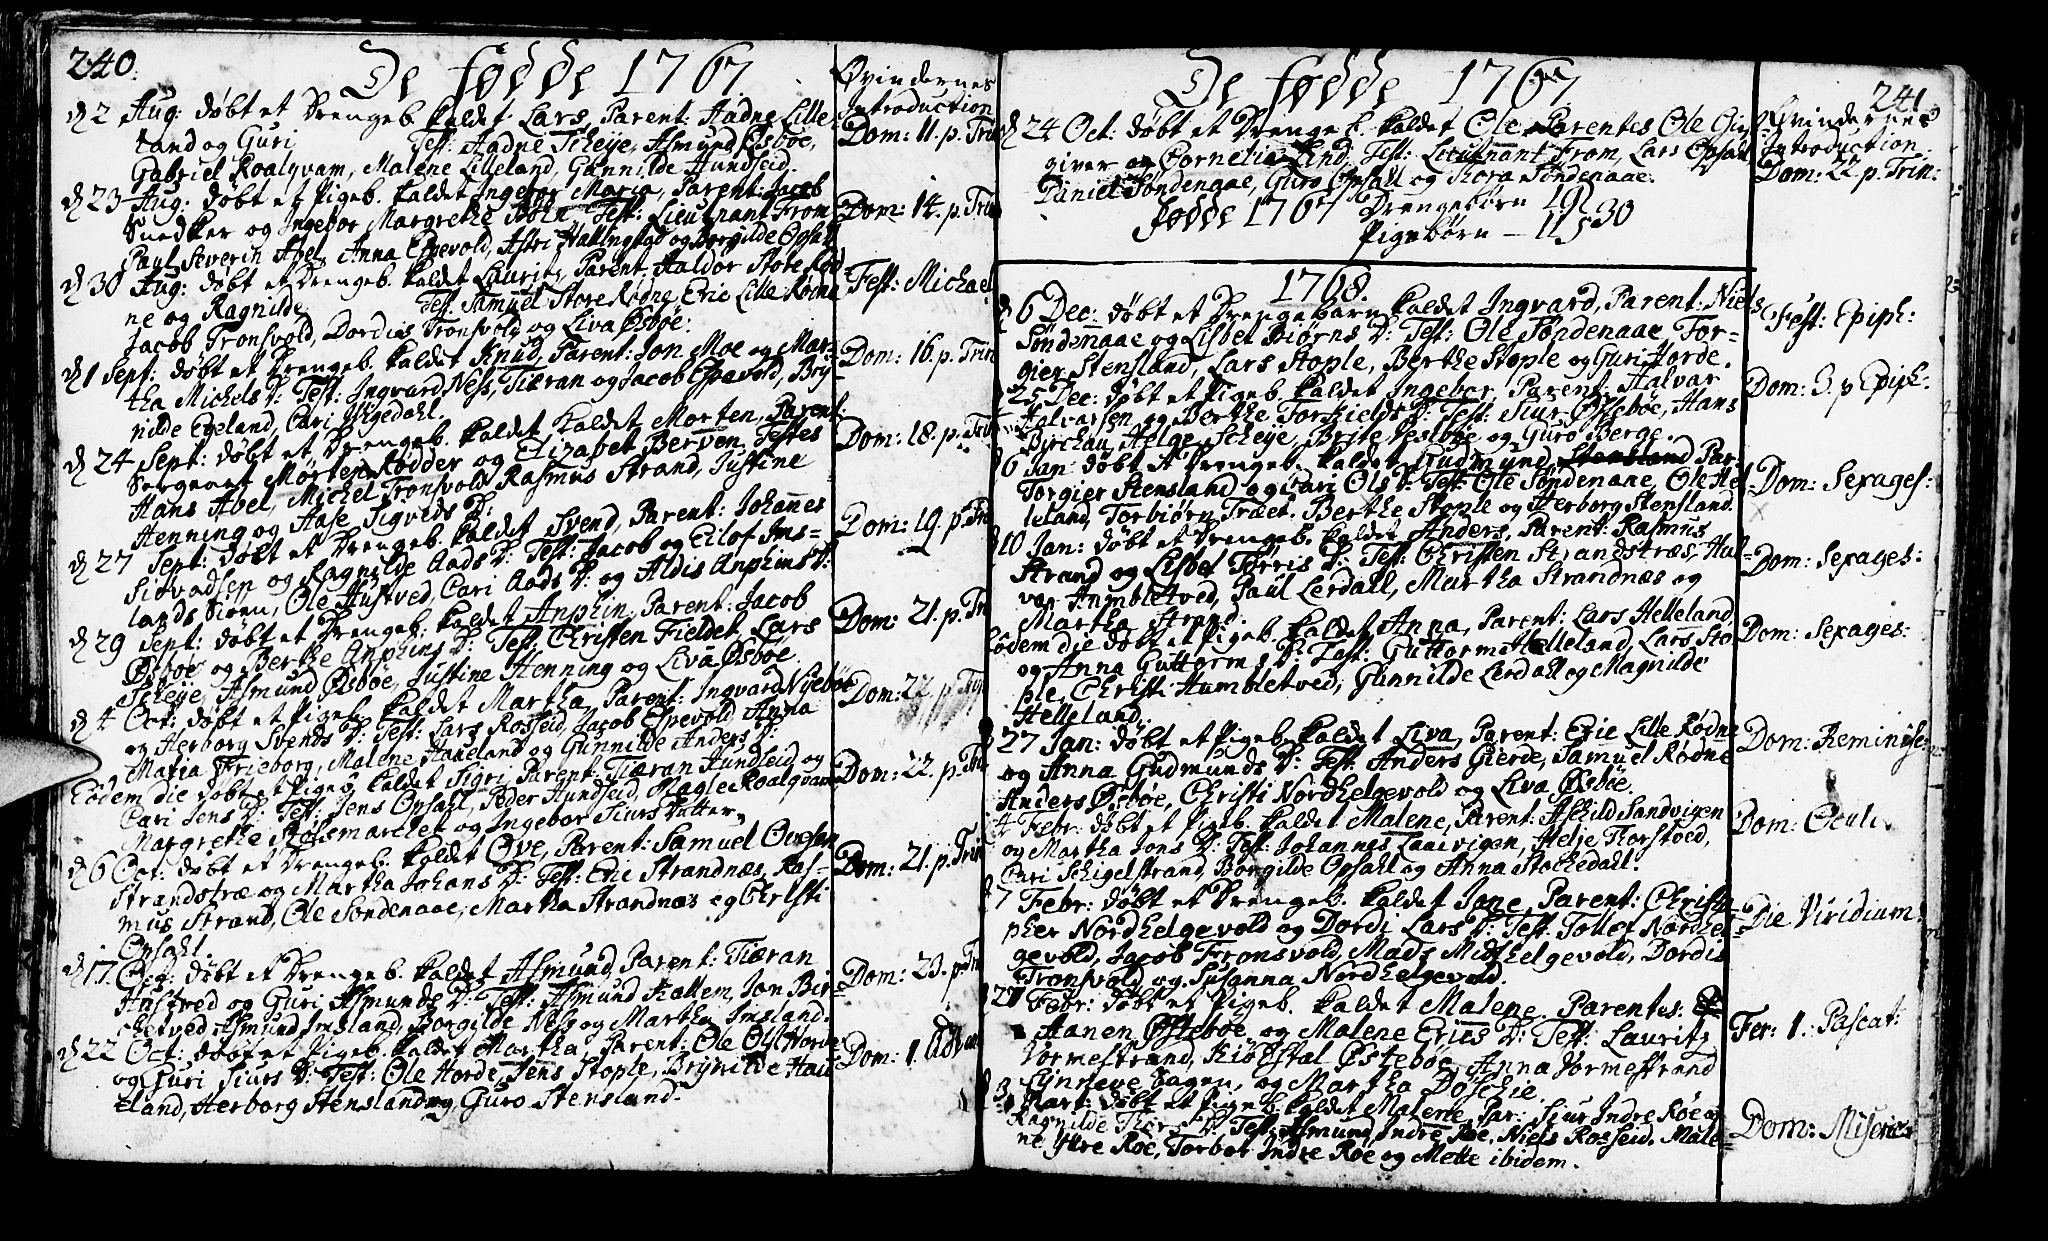 240.
De fødde 1767.
Qvindernes
Introduction
d 2 Aug: døbt et Drengeb. kaldet Lars, Parent: Aadne Lille-
land og Guri Test: Aadne Scheye, Asmund Øsbøe,
Gabriel Roalqvam, Malene Lilleland, Gunnilde Hundseid.
Dom: 11. p. Trin
d 23 Aug: døbt et Pigeb. kaldet Ingebor Maria, Parent: Jacob
Snedker og Ingebor Margrethe Test: Lieutnant From
Paul Severin Abel, Anna Espevold, Astri og Borgilde Opsal
Dom: 14. p. Trin
d 30 Aug: døbt et Drengeb. kaldet Lauritz, Parent: Haldor Store Rød
ne og Ragnilde Test. Samuel Store Rødne, Eric Lille Rødne
Jacob Tronsvold, Dordis Tronsvold og Liva Øsbøe.
Fest: Michael
d 1 Sept: døbt et Drengeb. kaldet Knud, Parent: Jon Moe og Mar-
tha Michels D: Test: Ingvard Ness, Tiæran og Jacob Espevold, Bry
nilde Egeland, Cari
Dom: 16. p. Trin
d 24 Sept: døbt et Drengeb. kaldet Morten, Parent:
Sergeant Morten Rødder og Elizabet Berven. Testes
Hans Abel, Michel Tronsvold Rasmus Strand, Justine
Henning og Aase Sigveds D:
Dom: 18. p. Trin
d 27 Sept: døbt et Drengeb. kaldet Svend, Parent: Johannes
Sigvadsen og Ragnilde Aads D: Test: Jacob og Eilof Ims-
lands Siøen, Ole Hustved, Cari Aads D: og Aldis Anphins D:
Dom: 19. p. Trin
d 29 Sept: døbt et Drengeb. kaldet Anphin, Parent: Jacob
Øsbøe og Berthe Anphins D: Test: Christen Fieldet, Lars
Scheye, Asmund Øsbøe, Justine Henning og Liva Øsbøe
Dom: 21. p. Tri
d 4 Oct: døbt et Pigeb. kaldet Martha, Parent: Ingvard Nyebøe
og Herborg Svends D: Test: Lars Rosseid, Jacob Espevold, Anna
Maria Frieborg, Malene Haveland og Gunnilde Anders D:
Dom: 22. p. Trin
Eodem die døbt et Pigeb. kaldet Sigri, Parent: Tiæran Hundseid og
Cari Jens D: Test: Jens Opsahl, Peder Hundseid, Magle Roalqvam
Margrethe Stølsmarchet og Ingebor Siurs Datter.
Dom: 22. p. Trin
d 6 Oct: døbt et Drengeb. kaldet Ove, Parent: Samuel Ovesen
Strandstræ og Martha Johans D: Test: Eric Strandnæs, Ras-
mus Strand, Ole Søndenaae, Martha Strandnæs og Christi
Opsahl.
Dom: 21. p. Trin
d 17. døbt et Drengeb. kaldet Asmund, Parent: Tiæran
Hustved og Guri Asmunds D: Test: Asmund Kallem, Jon Bir-
chetved Asmund Imsland, Borgilde Ness og Martha Imsland.
Dom: 23. p. Tri
d 22 Oct: døbt et Pigeb. kaldet Martha, Parent: Ole Horde
og Guri Siurs D: Test: Ole Horde, Jens Stople, Brynilde Hau
eland, Herborg Stensland og Guro Stensland.
Dom: 1. Adven
241
De fødde 1767
Qvindernes
Introduction
d 24 Oct: døbt et Drengeb. kaldet Ole Parentes Ole Giest
giver og Cornelia Lind, Test: Lieutnant From, Lars Opsall
Daniel Søndenaae, Guro Opsall og Thora Søndenaae.
Dom: 22 p. Trin:
Fødde 1767 Drengebørn 19
Pigebørn — 11 30
1768.
6 Dec: døbt et Drengebarn kaldet Ingvard, Parent: Niels
Søndenaae og Lisbet Biørns D: Test: Ole Søndenaae Tor-
gier Stensland, Lars Stople, Berthe Stople og Guri Horde.
Fest: Epiph:
25 Dec: døbt et Pigeb. kaldet Ingebor, Parent: Halvar
Halvarsen og Berthe Torkields D: Test: Siur Østebøe, Hans
Byrchau, Helge Scheye, Brite Vestbøe og Guro Berge.
Dom: 3. p Epiph.
6 Jan: døbt et Drengeb. kaldet Gudmund, Stensland Par-
Torgier Stensland og Cari Ols D: Test: Ole Søndenaae, Ole Hel
leland, Torbiørn Træet, Berthe Stople og Herborg Stensland.
Dom: Sexages:
10 Jan: døbt et Drengeb. kaldet Anders, Parent: Rasmus
Strand og Lisbet Torris D: Test: Christen Strandstræs, Hal-
var Humbletved, Paul Lerdall, Martha Strandnæs og
Martha Strand.
Dom: Sexages:
Eodem die døbt et Pigeb. kaldet Anna, Parent: Lars Helleland
og Anna Guttorms D: Test: Guttorm Helleland, Lars Sto
ple, Christi Humbletved, Gunnilde Lerdall og Magnilde
Helleland.
Dom: Sexages:
27 Jan: døbt et Pigeb. kaldet Liva, Parent: Eric Lille Rødne
og Anna Gudmunds D: Test: Anders Gierde, Samuel Rødne
Anders Øsbøe, Christi Nordhelgevold og Liva Øsbøe.
Dom: Reminisc:
Febr: døbt et Pigeb. kaldet Malene, Parent: Askild Sandvigen
og Martha Jons D: Test: Johannes Laaevigen, Helje Thorstoed,
Cari Schigelstrand, Borgilde Opsahl og Anna Stochedahl.
Dom: Oculi
7 Febr: døbt et Drengeb. kaldet Jone, Parent: Christo
pher Nordhelgevold og Dordi Lars D: Test: Tollef Nordhel
gevold, Jacob Tronsvold, Mads Midthelgevold, Dordis
Tronsvold og Susanna Nordhelgevold.
Die Viridium:
27 Febr: døbt et Pigeb. kaldet Malene, Parentes:
Aanen Østebøe og Malene Erics D: Test: Lauritz
Vormestrand, Kiøstal Østebøe, Anna Vormestrand
Synneve Sagen, og Martha Døschie.
Fer: 1. Pascat:
3 Mart: døbt et Pigeb. kaldet Malene, Par: Siur Indre Røe og
Ragnilde Thors D: Test: Asmund Indre Røe, Niels Rosseid, Male-
ne Yttre Røe, Torbor Indre Røe og Mette ibidem.
Dom: Misericor